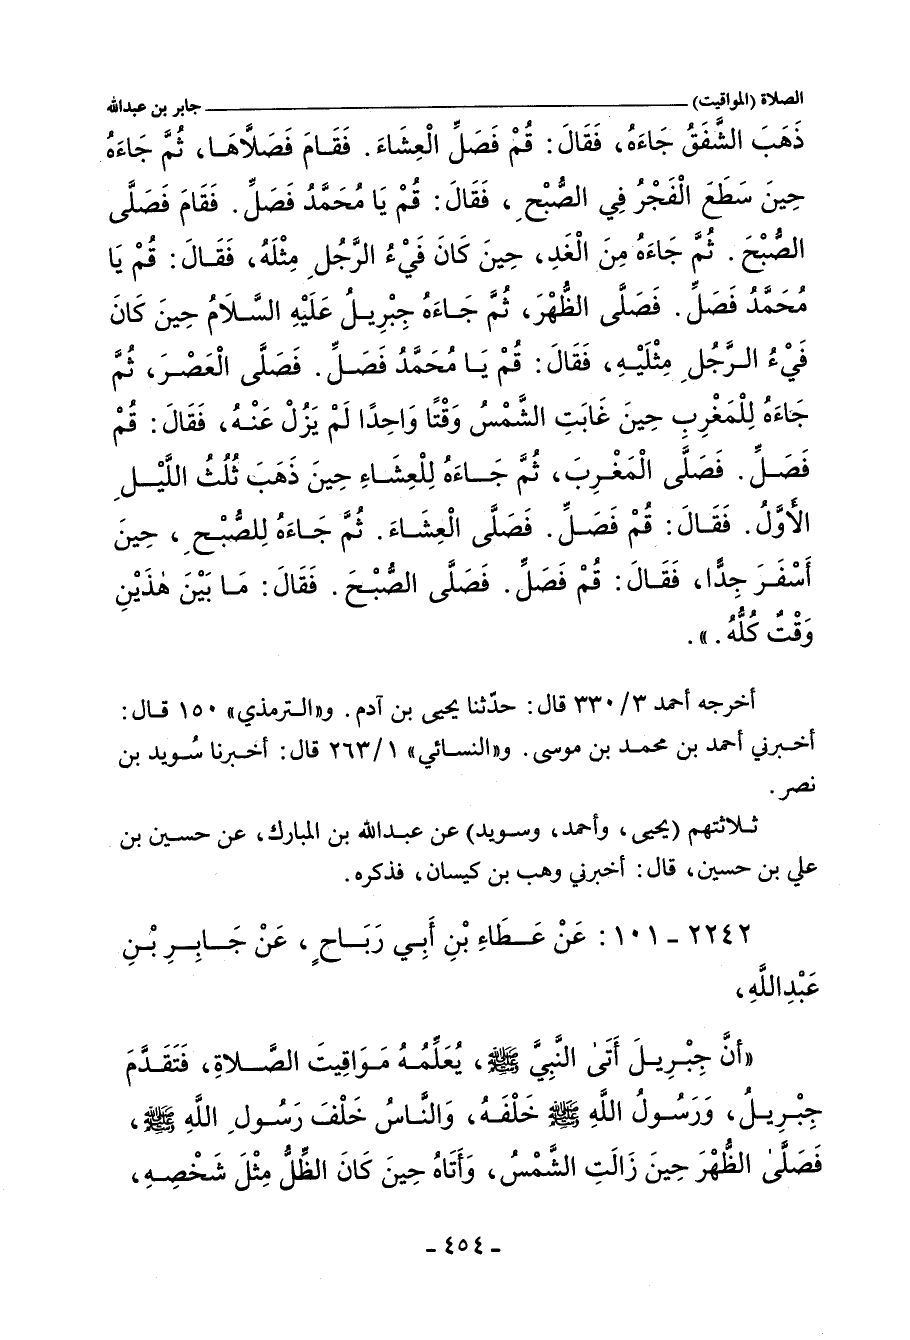 الصلاة (المواقيت) جابر بن عبدالله
ذَهَبَ الشَّفَقُ جَاءَهُ، فَقَالَ: قُمْ فَصَلِّ الْعِشَاءَ. فَقَامَ فَصَلَّاهَا، ثُمَّ جَاءَهُ
حِينَ سَطَعَ الْفَجْرُ فِي الصُّبْحِ، فَقَالَ: قُمْ يَا مُحَمَّدُ فَصَلِّ. فَقَامَ فَصَلَّى
الصُّبْحَ. ثُمَّ جَاءَهُ مِنَ الْغَدِ، حِينَ كَانَ فَيْءُ الرَّجُلِ مِثْلَهُ، فَقَالَ: قُمْ يَا
مُحَمَّدُ فَصَلِّ. فَصَلَّى الظُّهْرَ، ثُمَّ جَاءَهُ جِبْرِيلُ عَلَيْهِ السَّلَامُ حِينَ كَانَ
فَيْءُ الرَّجُلِ مِثْلَيْهِ، فَقَالَ: قُمْ يَا مُحَمَّدُ فَصَلِّ. فَصَلَّى الْعَصْرَ، ثُمَّ
جَاءَهُ لِلْمَغْرِبِ حِينَ غَابَتِ الشَّمْسُ وَقْتًا وَاحِدًا لَمْ يَزُلْ عَنْهُ، فَقَالَ: قُمْ
فَصَلِّ. فَصَلَّى الْمَغْرِبَ، ثُمَّ جَاءَهُ لِلْعِشَاءِ حِينَ ذَهَبَ ثُلُثُ اللَّيْلِ
الأَوَّلُ. فَقَالَ: قُمْ فَصَلِّ. فَصَلَّى الْعِشَاءَ. ثُمَّ جَاءَهُ لِلصُّبْحِ، حِينَ
أَسْفَرَ جِدًّا، فَقَالَ: قُمْ فَصَلِّ. فَصَلَّى الصُّبْحَ. فَقَالَ: مَا بَيْنَ هٰذَيْنِ
وَقْتٌ كُلُّهُ.».
أخرجه أحمد ٣/٣٣٠ قال: حدّثنا يحيى بن آدم. و«الترمذي» ١٥٠ قال:
أخبرني أحمد بن محمد بن موسى. و«النسائي» ١/٢٦٣ قال: أخبرنا سُويد بن
نصر.
ثلاثتهم (يحيى، وأحمد، وسويد) عن عبدالله بن المبارك، عن حسين بن
علي بن حسين، قال: أخبرني وهب بن كيسان، فذكره.
٢٢٤٢ - ١٠١: عَنْ عَطَاءِ بْنِ أَبِي رَبَاحٍ، عَنْ جَابِرِ بْنِ
عَبْدِاللَّهِ،
«أَنَّ جِبْرِيلَ أَتَىٰ النَّبِيَّ ﷺ، يُعَلِّمُهُ مَوَاقِيتَ الصَّلاةِ، فَتَقَدَّمَ
جِبْرِيلُ، وَرَسُولُ اللَّهِ ﷺ خَلْفَهُ، وَالنَّاسُ خَلْفَ رَسُولِ اللَّهِ ﷺ،
فَصَلَّىٰ الظُّهْرَ حِينَ زَالَتِ الشَّمْسُ، وَأَتَاهُ حِينَ كَانَ الظِّلُّ مِثْلَ شَخْصِهِ،
- ٤٥٤ -